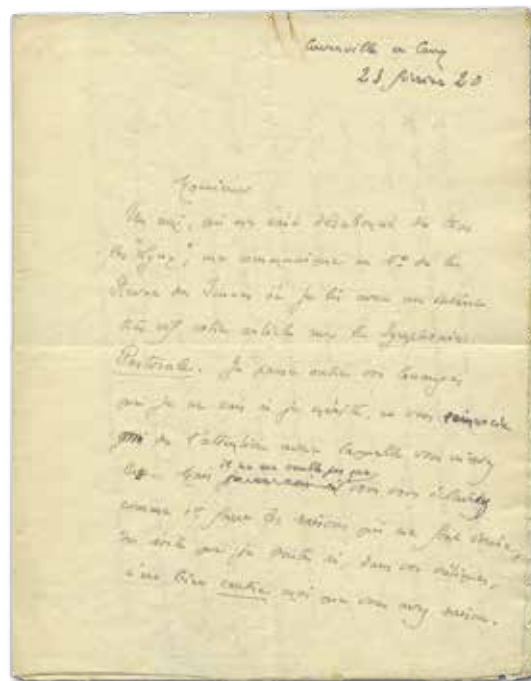 Cuverville en Caux
23 février 20
Monsieur
Un ami, qui me sait désabonné de tous
les "Lynx", me communique le Nº de la
Revue des Jeunes où je lis avec un intérêt
très vif votre article sur la Symphonie
Pastorale. Je passe outre vos louanges
que je ne sais si je mérite, ne vous remercie
que de l'attention avec laquelle vous m'avez
lu. Mais il ne me semble pas que vous vous éclairiez
comme il faut les raisons qui me font écrire,
de sorte que je doute si, dans vos critiques,
c'est bien contre moi que vous avez raison.